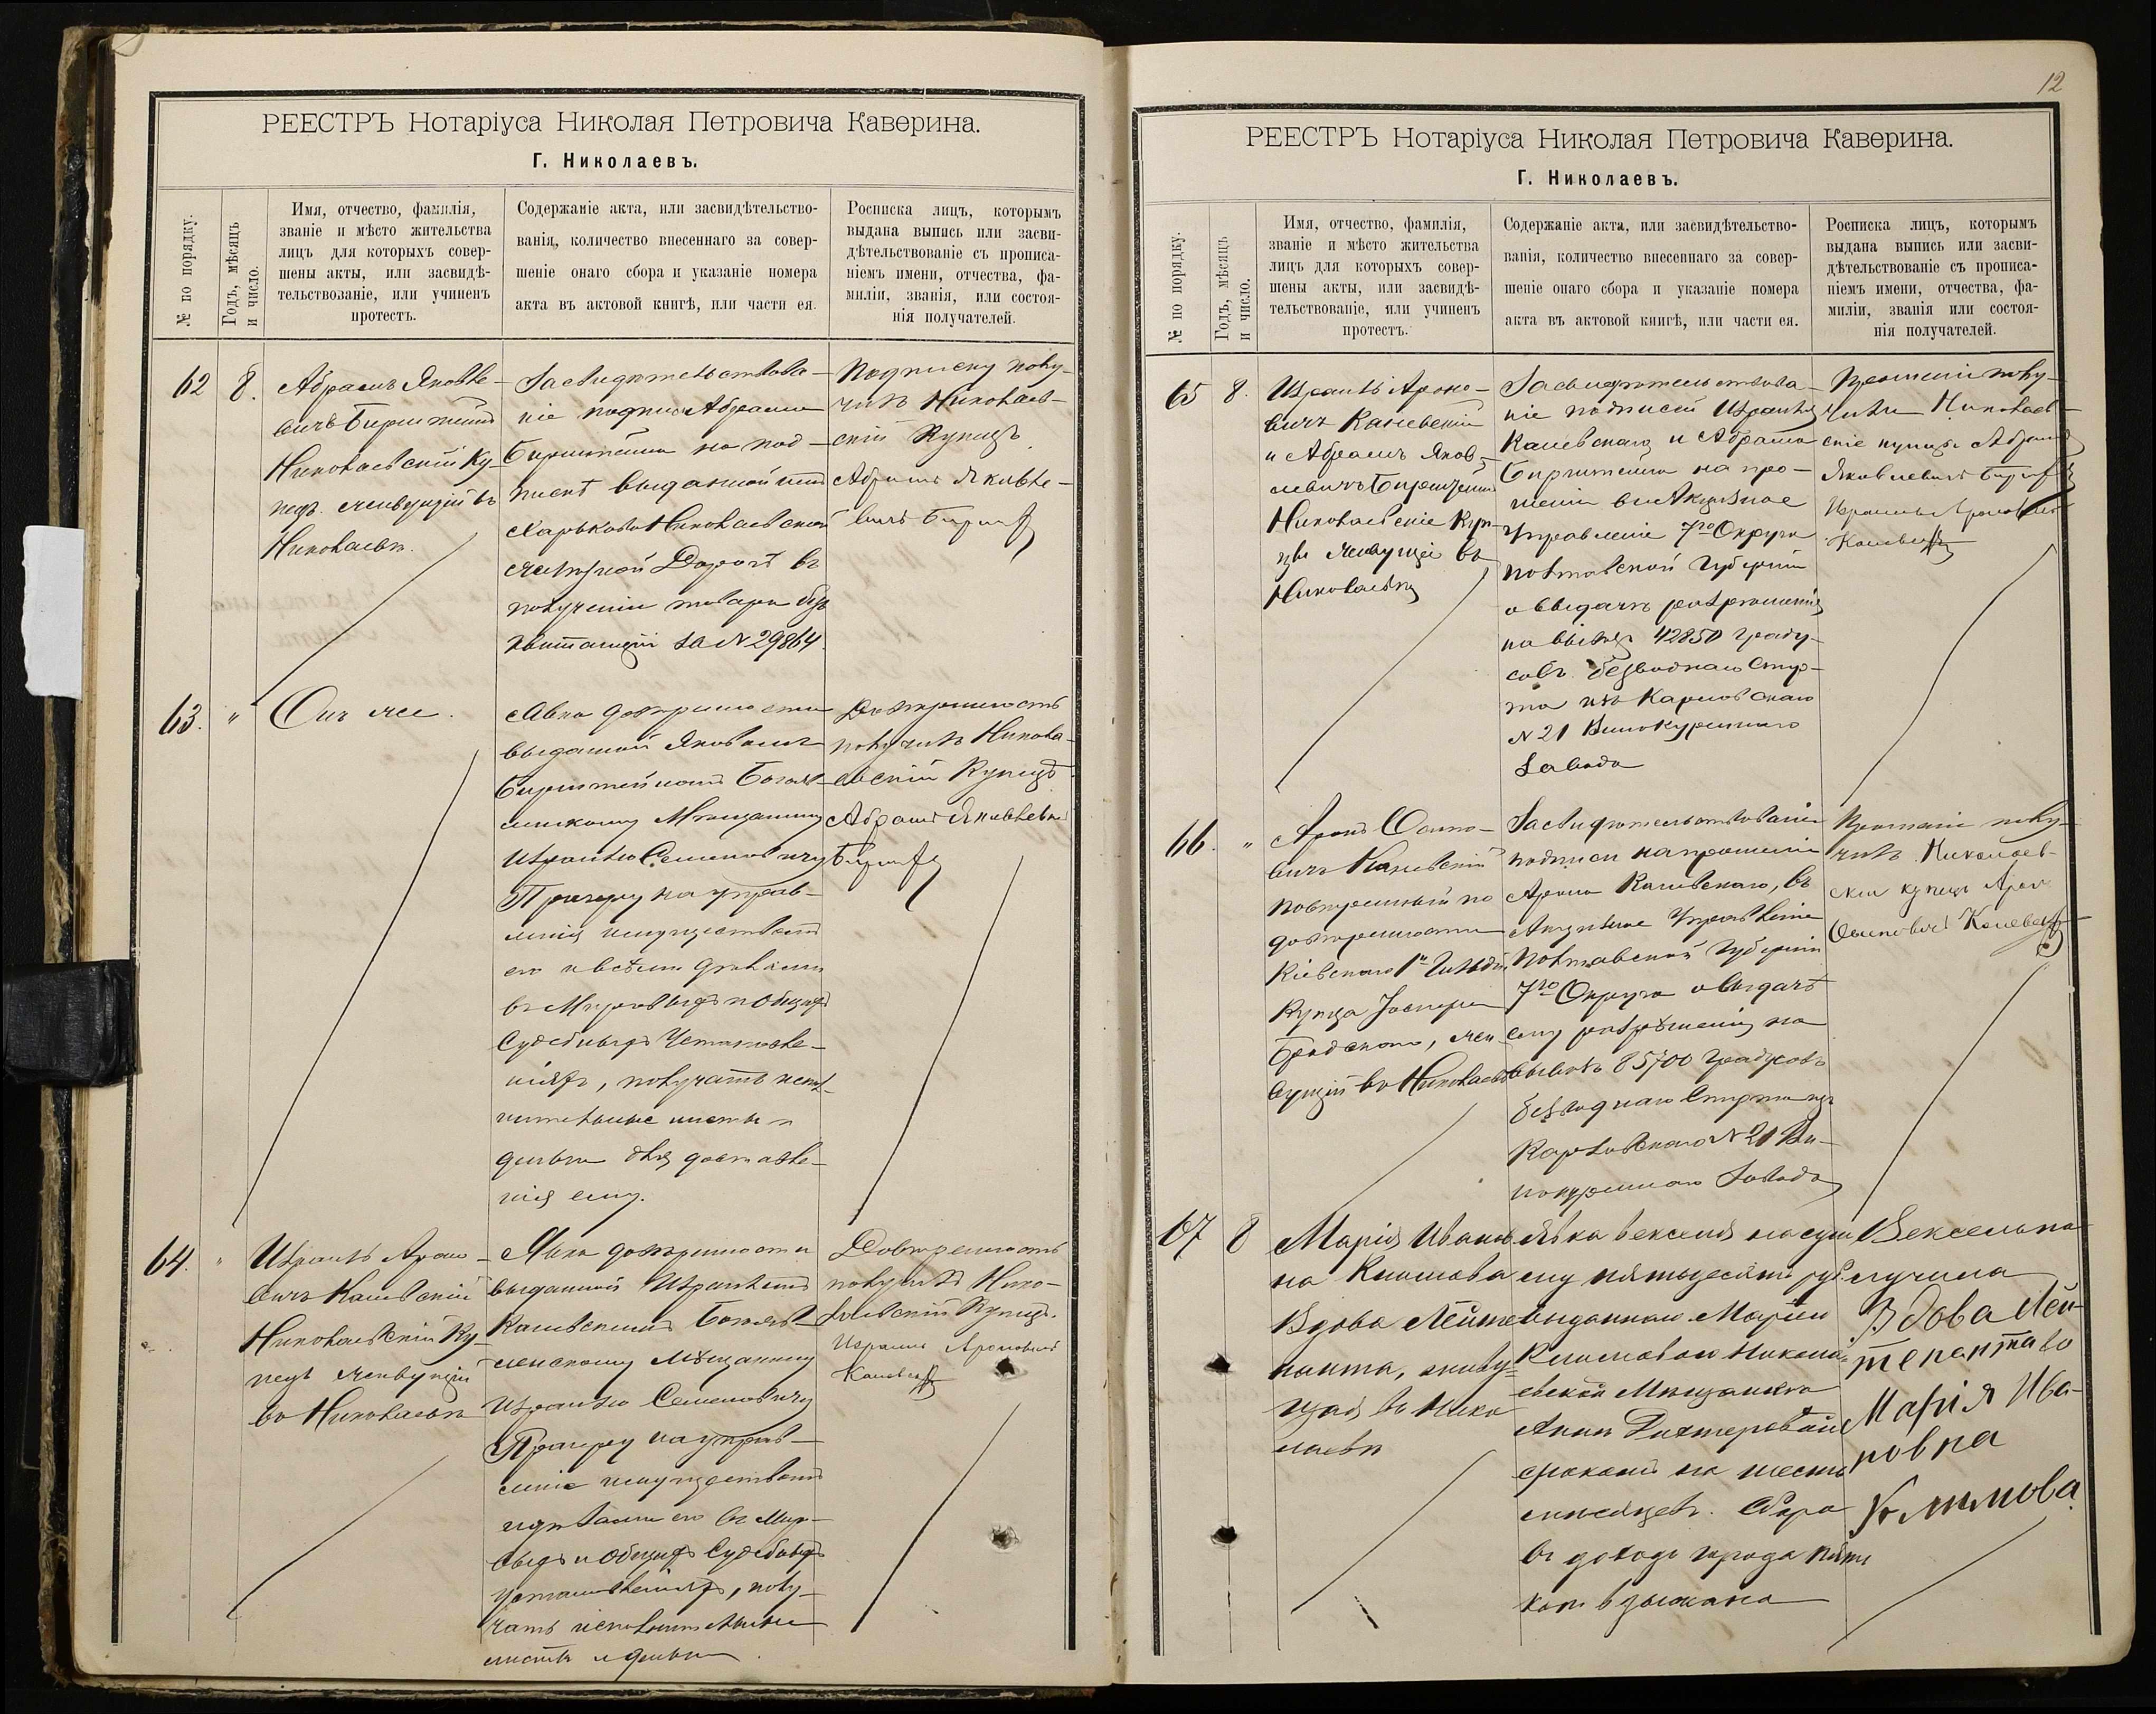 РЕЕСТРЪ Нотаріуса Николая Петровича Каверина.
Г. Николаевъ.
№ по порядку.
Годъ, мѣсяцъ
и число.
Имя, отчество, фамилія,
званіе и мѣсто жительства
лицъ для которыхъ совер-
шены акты, или засвидѣ-
тельствованіе, или учиненъ
протестъ.
Содержаніе акта, или засвидѣтельство-
ванія, количество внесеннаго за совер-
шеніе онаго сбора и указаніе номера
акта въ актовой книгѣ, или части ея.
Росписка лицъ, которымъ
выдана выпись или засви-
дѣтельствованіе съ прописа-
ніемъ имени, отчества, фа-
миліи, званія, или состоя-
нія получателей.
62
8.
Абрамъ Яковле-
вичъ
Николаевскій Ку-
пецъ живущій въ
Николаевѣ.
Засвидѣтельствова-
ніе подписи Абрама
на под-
пискѣ выданной имъ
Харьково Николаевской
желѣзной Дорогѣ въ
полученіи товара безъ
квитанціи за N 29864.
Подписку полу-
чилъ Николаев-
скій Купецъ
Абрамъ Яковле-
вичъ
63.
"
Онъ же.
Явка довѣренности
выданной Яковомъ
Богояв-
ленскому Мѣщанину
Израилю Семеновичу
на управ-
леніе имуществомъ
его и всѣми дѣлами
въ Мировыхъ и Общихъ
Судебныхъ Установле-
ніяхъ, получать испол-
нительные листы и
деньги для доставле-
нія ему.
Довѣренность
получилъ Никола-
евскій Купецъ
Абрамъ Яковлевичъ
64.
"
Израиль Ароно-
вичъ Каневскій
Николаевскій Ку-
пецъ живущій
въ Николаевѣ
Явка довѣренности
выданной Израилемъ
Каневскимъ Богояв-
ленскому мѣщанину
Израилю Семеновичу
на управ-
леніе имуществомъ
и дѣлами его въ Миро-
выхъ и Общихъ Судебныхъ
установленіяхъ, полу-
чать исполнительные
листы и деньги.
Довѣренность
получилъ Нико-
лаевскій Купецъ.
Израиль Ароновичъ
Каневскій
12
РЕЕСТРЪ Нотаріуса Николая Петровича Каверина.
Г. Николаевъ.
№ по порядку.
Годъ, мѣсяцъ
и число.
Имя, отчество, фамилія,
званіе и мѣсто жительства
лицъ для которыхъ совер-
шены акты, или засвидѣ-
тельствованіе, или учиненъ
протестъ.
Содержаніе акта, или засвидѣтельство-
ванія, количество внесеннаго за совер-
шеніе онаго сбора и указаніе номера
акта въ актовой книгѣ, или части ея.
Росписка лицъ, которымъ
выдана выпись или засви-
дѣтельствованіе съ прописа-
ніемъ имени, отчества, фа-
миліи, званія или состоя-
нія получателей.
65
8.
Израиль Ароно-
вичъ Каневскій
и Абрамъ Яков-
левичъ
Николаевскіе Куп-
цы живущіе въ
Николаевѣ
Засвидѣтельствова-
ніе подписей Израиля
Каневскаго и Абрама
на про-
шеніи въ Акцизное
Управленіе 7го Округа
Полтавской Губерніи
о выдачѣ разрѣшенія
на вывозъ 42850 граду-
совъ безводнаго Спир-
та изъ Карловскаго
N 21 Винокуреннаго
Завода
Прошеніе полу-
чили Николаев-
скіе купцы Абрамъ
Яковлевичъ
Израиль Ароновичъ
Каневскій
66.
"
Аронъ Осипо-
вичъ Каневскій
повѣренный по
довѣренности
Кіевскаго 1й Гильдіи
Купца
Бродскаго, жи-
вущій въ Николаевѣ
Засвидѣтельствованіе
подписи на прошеніи
Арона Каневскаго, въ
Акцизное Управленіе
Полтавской Губерніи
7го Округа о выдачѣ
ему разрѣшенія на
вывозъ 85700 градусовъ
безводнаго Спирта изъ
Карловскаго N 21 Ви-
нокуреннаго Завода
Прошеніе полу-
чилъ Николаев-
скій купецъ Аронъ
Осиповичъ Каневскій
67
8
Марія Иванов-
на Климова
Вдова Лейте-
нанта, живу-
щая въ Нико-
лаевѣ
Явка векселя на сум-
му пятьдесятъ руб.
выданнаго Маріи
Климовой Никола-
евской Мѣщанкой
Анной
срокомъ на шесть
мѣсяцевъ. Сбора
въ доходъ города пять
коп. взыскано
Вексель по-
лучила
Вдова Лей-
тенанта
Марія Ива-
новна
Климова.